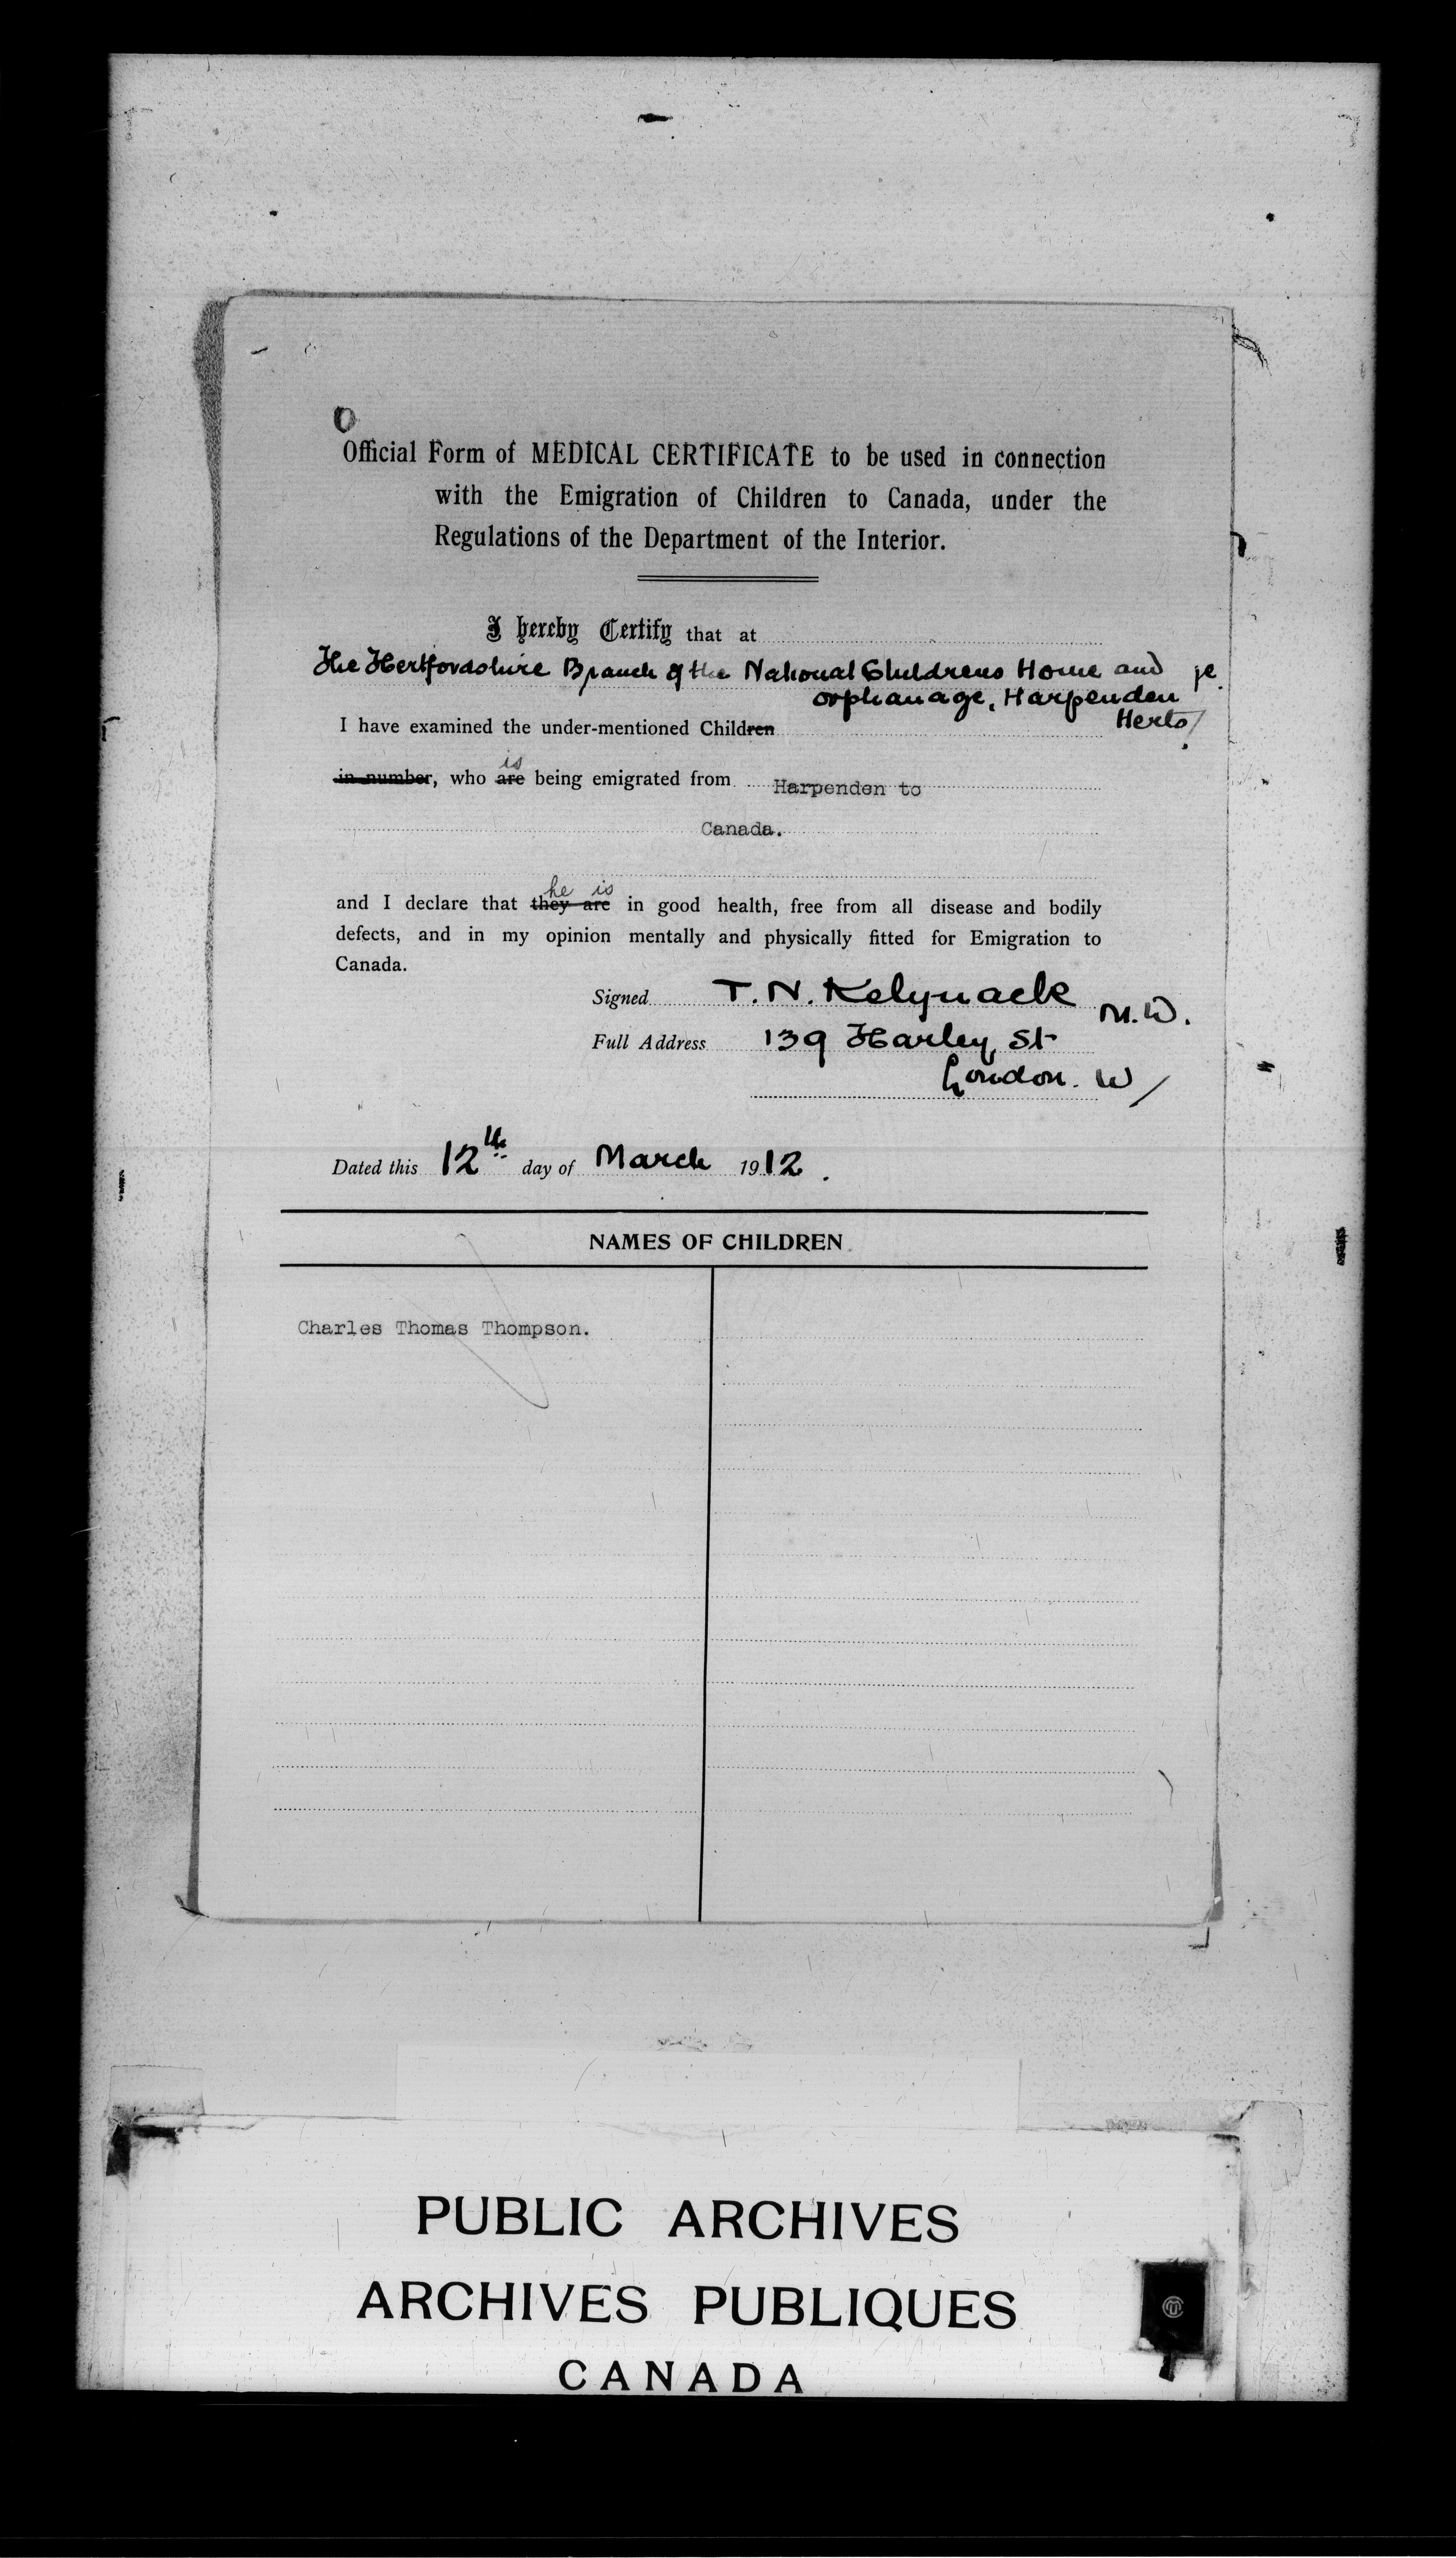 Official Form of MEDICAL CERTIFICATE to be used in connection
with the Emigration of Children to Canada, under the
Regulations of the Department of the Interior.
I hereby Certify that at
The Hertfordshire Branch of the National Childrens Home and
orphanage, Harpenden
Herts
I have examined the under-mentioned Children
is
in number, who are being emigrated from Harpenden to
Canada.
he is
and I declare that they are in good health, free from all disease and bodily
defects, and in my opinion mentally and physically fitted for Emigration to
Canada.
Signed T. N. Kelynack M.D.
Full Address 139 Harley St
London. W
Dated this 12th day of March 1912.
NAMES OF CHILDREN
Charles Thomas Thompson.
PUBLIC ARCHIVES
ARCHIVES PUBLIQUES
CANADA